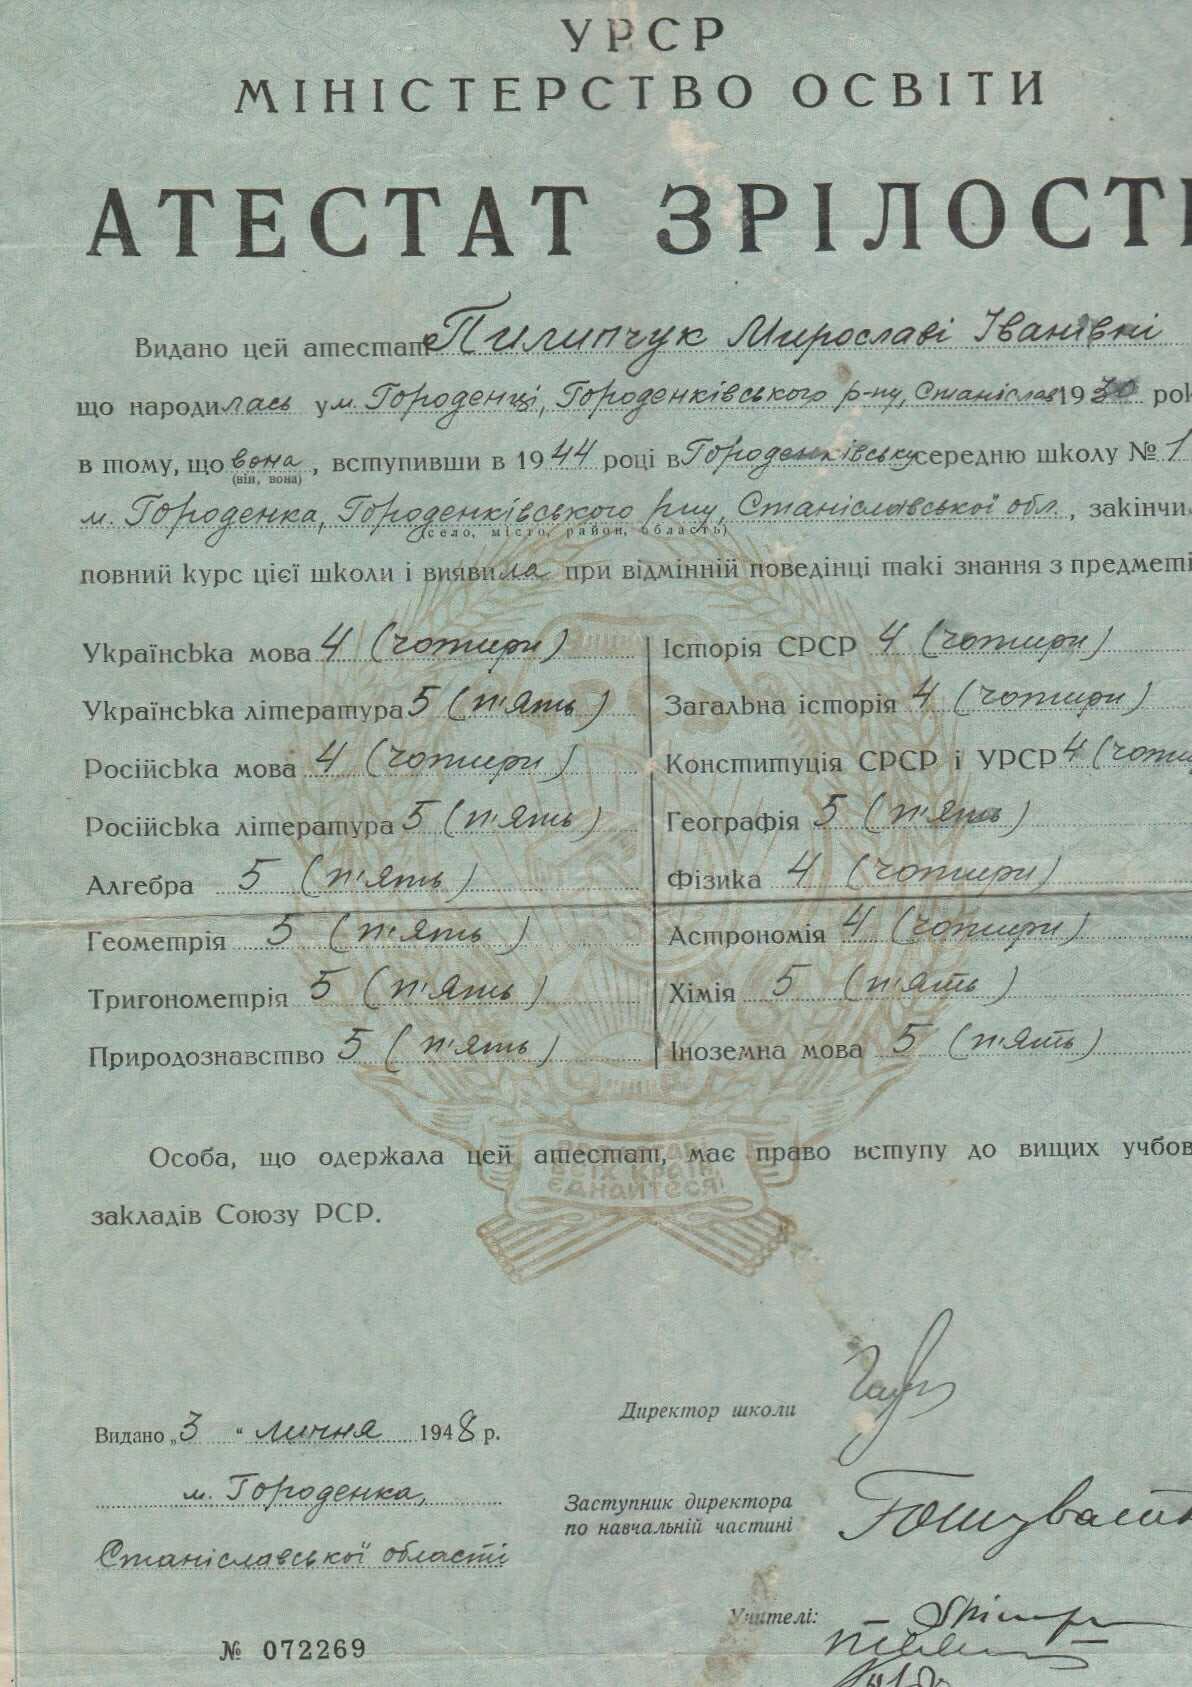 УРСР
МІНІСТЕРСТВО ОСВІТИ
АТЕСТАТ ЗРІЛОСТІ
Видано цей атестат Пилипчук Мирославі Іванівні
що народилась у м. Городенці, Городенківського р-ну, Станіслав 1930 рок
в тому, що вона, вступивши в 1944 році в Городенківську середню школу № 1
(він, вона)
м. Городенка, Городенківського р-ну, Станіславської обл., закінчи
(село, місто, район, область)
повний курс цієї школи і виявила при відмінній поведінці такі знання з предметі
Українська мова 4 (чотири)
Українська література 5 (п'ять)
Російська мова 4 (чотири)
Російська література 5 (п'ять)
Алгебра 5 (п'ять)
Геометрія 5 (п'ять)
Тригонометрія 5 (п'ять)
Природознавство 5 (п'ять)
Історія СРСР 4 (чотири)
Загальна історія 4 (чотири)
Конституція СРСР і УРСР 4 (чоти
Географія 5 (п'ять)
Фізика 4 (чотири)
Астрономія 4 (чотири)
Хімія 5 (п'ять)
Іноземна мова 5 (п'ять)
ПРОЛЕТАРІ
ВСІХ КРАЇН,
ЄДНАЙТЕСЯ!
Особа, що одержала цей атестат, має право вступу до вищих учбов
закладів Союзу РСР.
Директор школи
Видано „3" липня 1948 р.
м. Городенка,
Станіславської області
Заступник директора
по навчальній частині
Учителі:
№ 072269